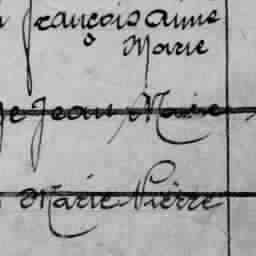 François Aimé
Marie
Je Jean Marie
Marie Pierre